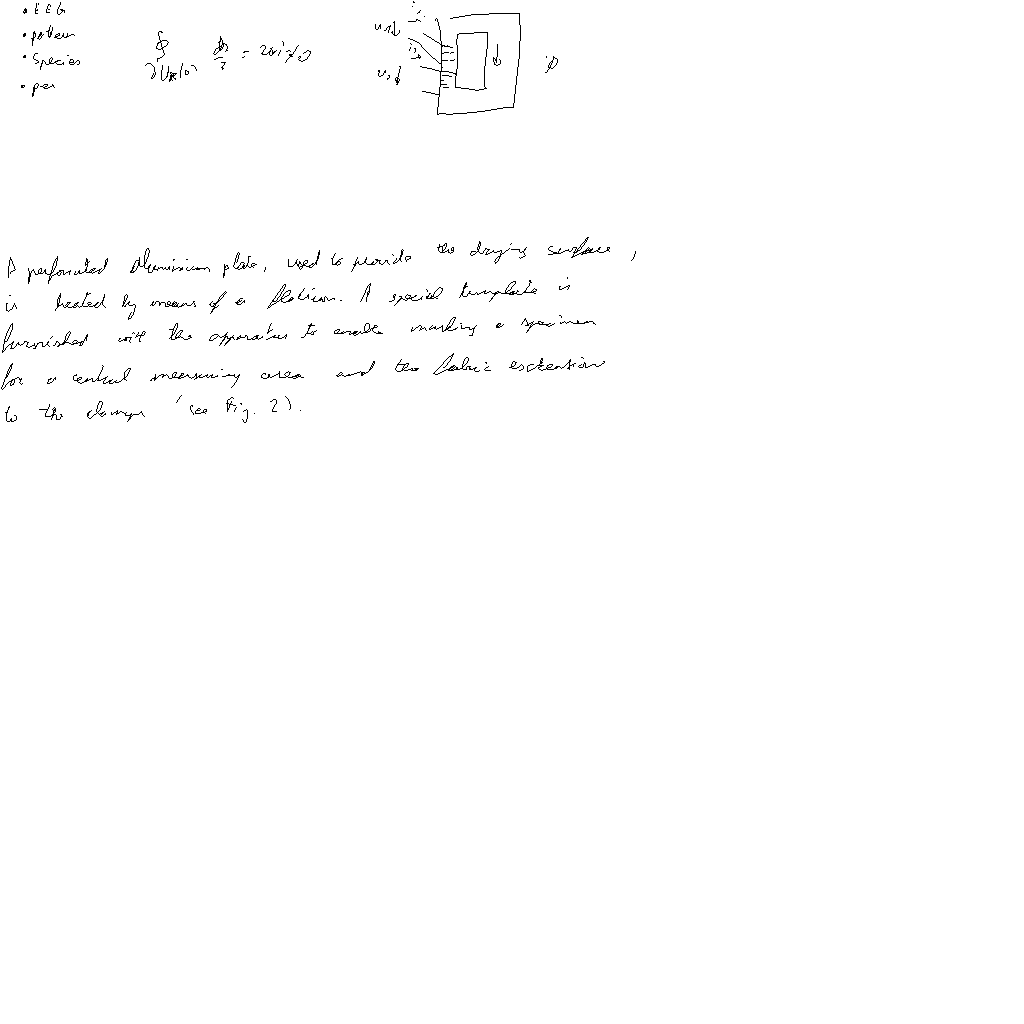 • EEG
• pattern
• Species
• per
∮ ∂U_R(0) dz/z = 2πi ≠ 0
i₁
u₁↓
i₂
u₂↓
↓
φ
A perforated aluminium plate, used to provide the drying surface,
is heated by means of a flatiron. A special template is
furnished with the apparatus to enable marking a specimen
for a central measuring area and the fabric extension
to the clamps (see Fig. 2).